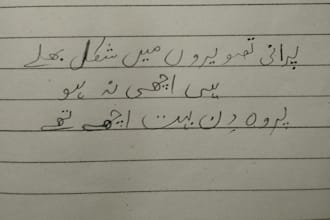 پرانی تصویروں میں شکل بھلے
ہی اچھی نہ ہو
پر وہ دِن بہت اچھے تھے